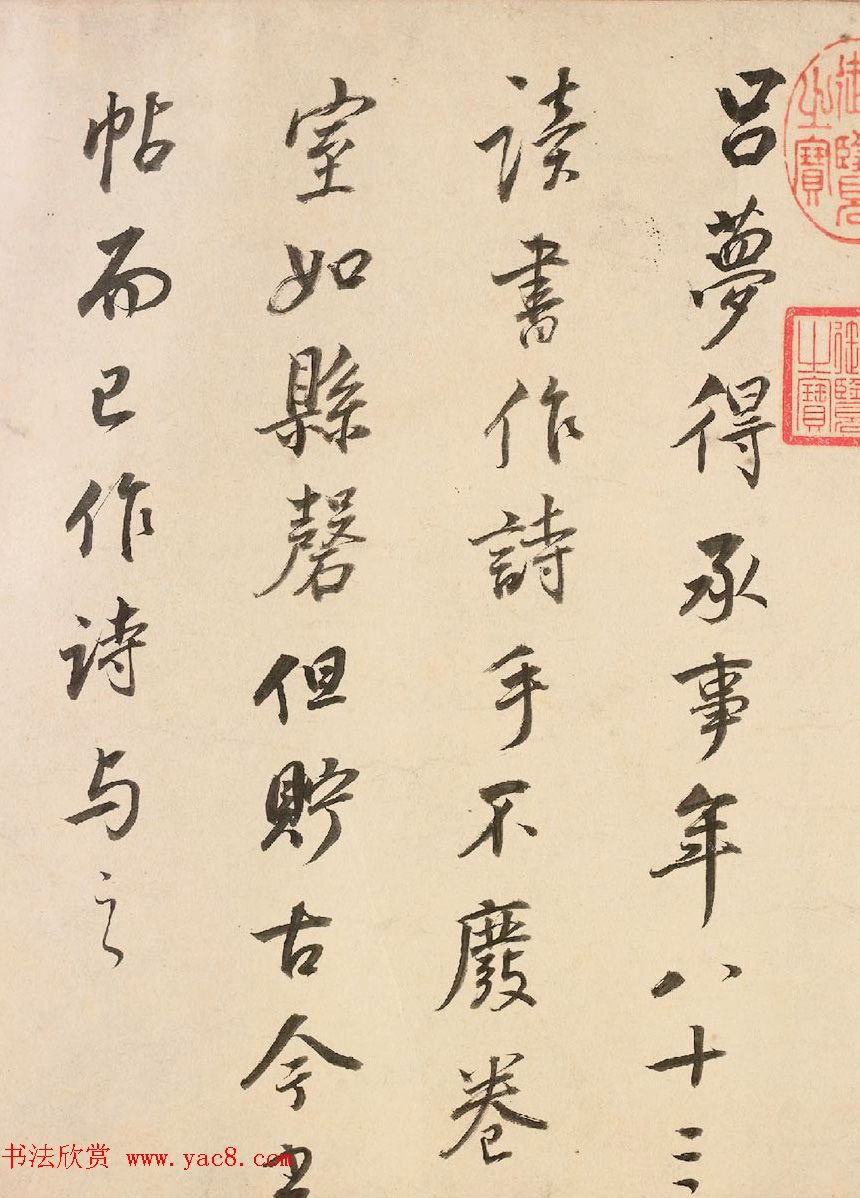 御覽之寶
御覽之寶
呂夢得承事年八十三
讀書作詩手不廢卷
室如縣磬但貯古今
帖而已作詩与之
书法欣赏 www.yac8.com